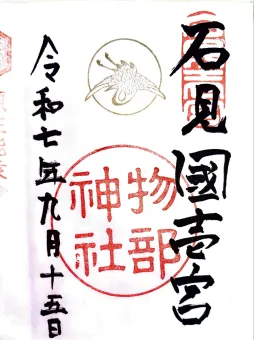 石見國壱宮
物部
神社
令和七年九月十五日